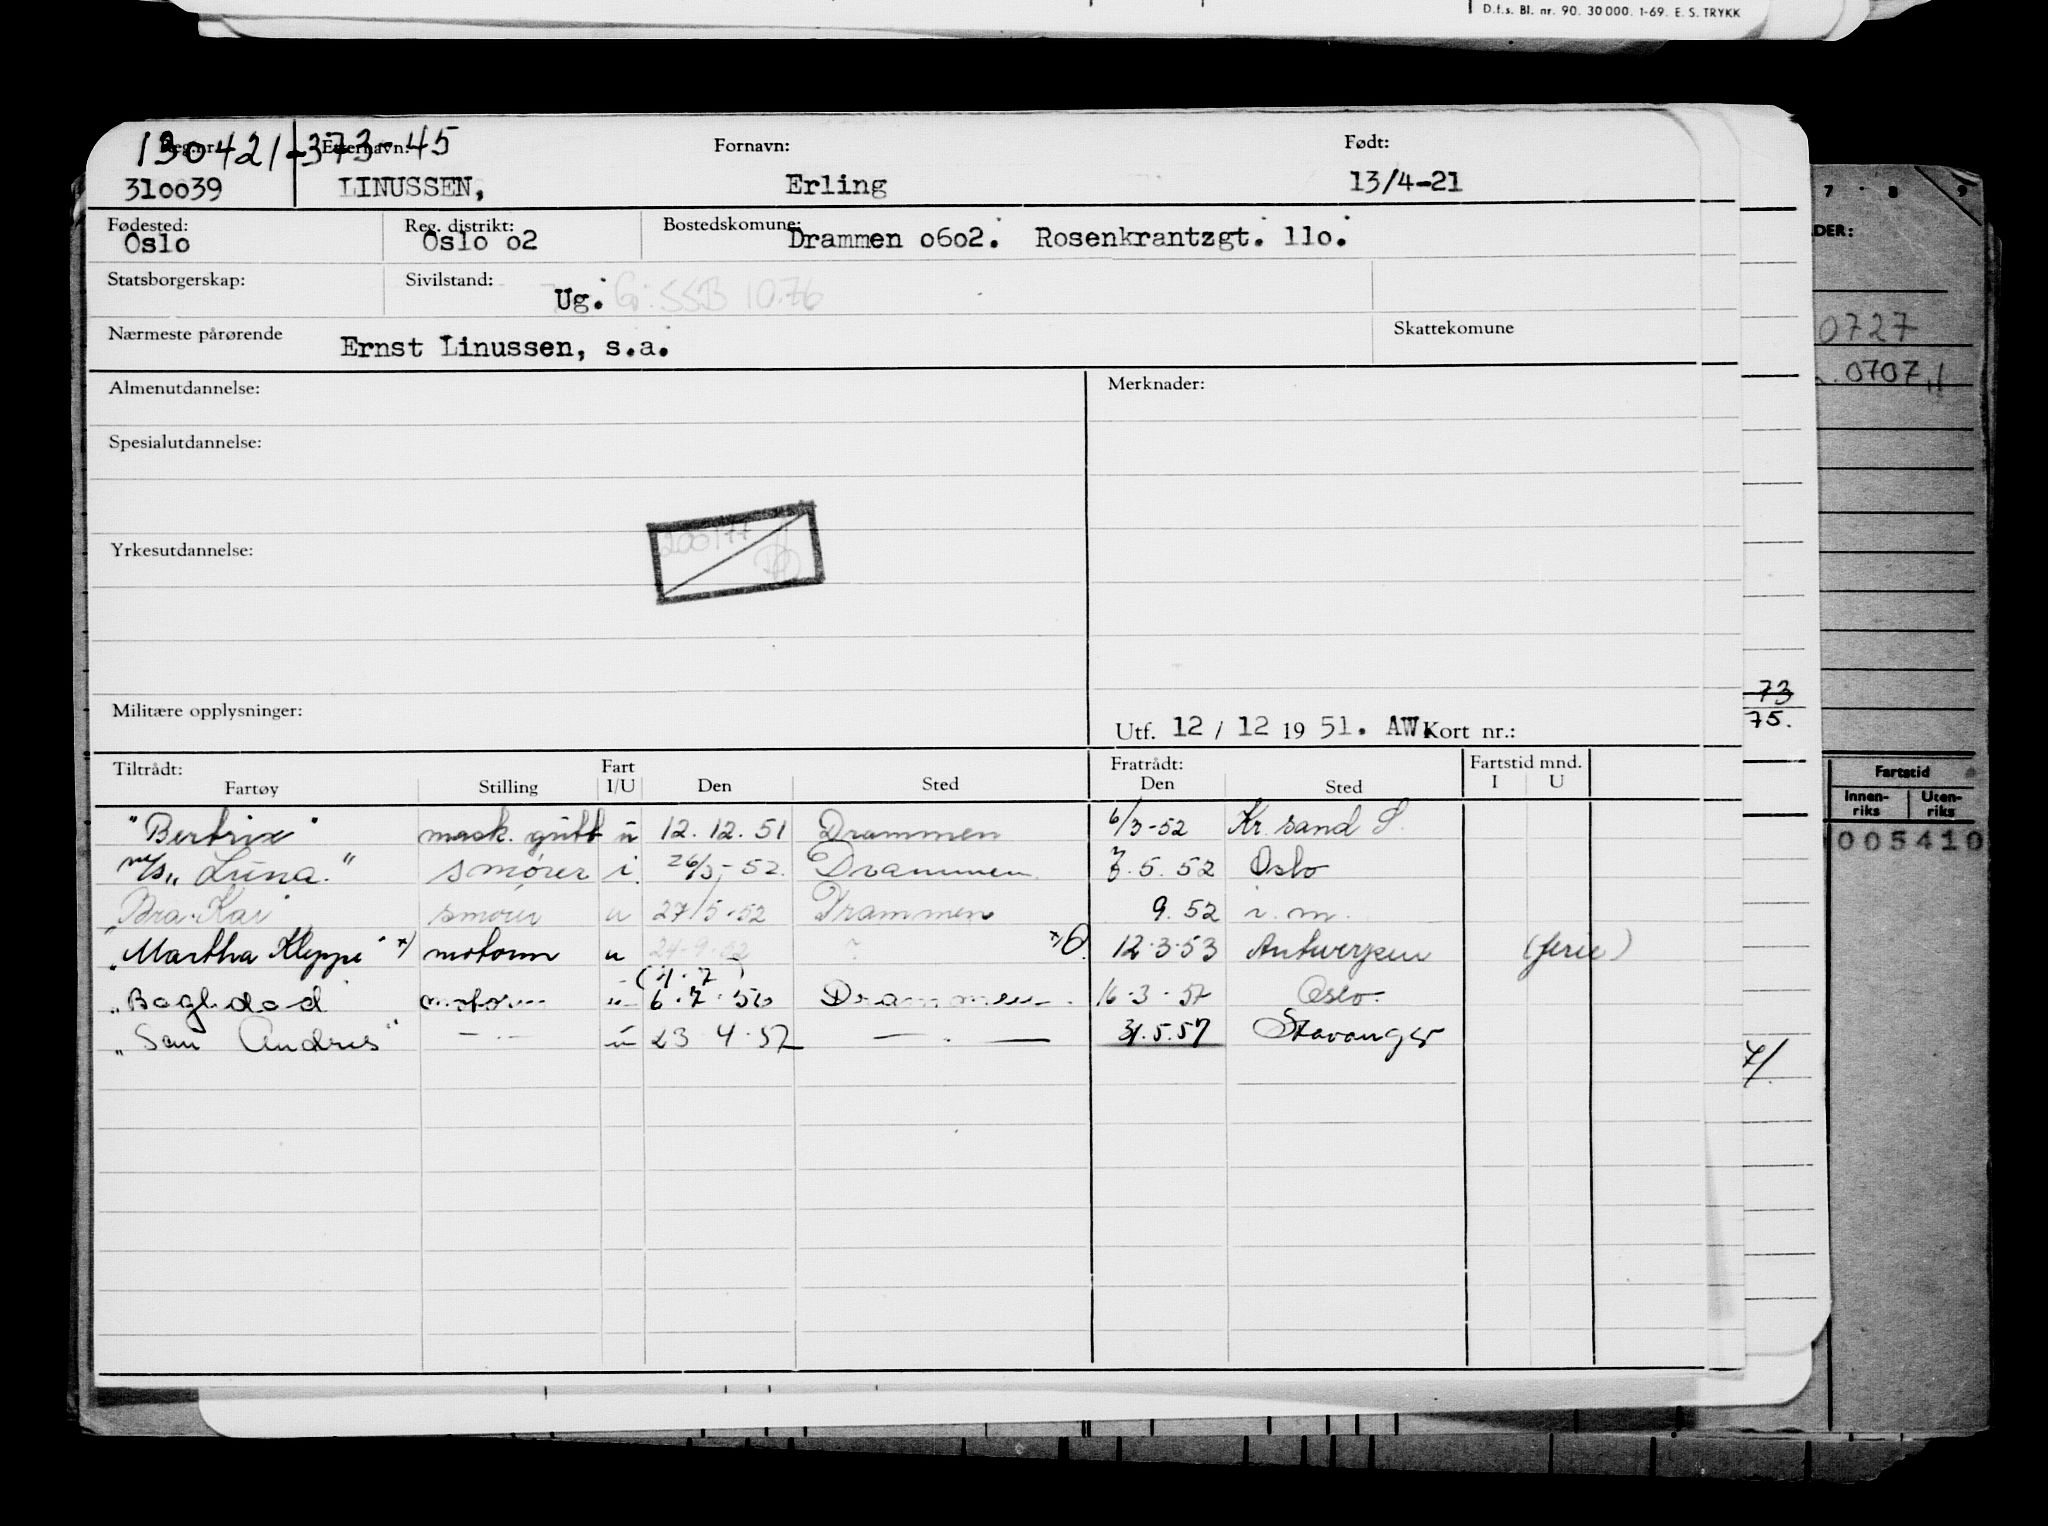 D.f.s. Bl. nr. 90. 30 000. 1-69. E. S. TRYKK
130421-373-45
Reg.nr. Etternavn: Fornavn: Født:
310039 LINUSSEN, Erling 13/4-21
Fødested: Reg. distrikt: Bostedskomune:
Oslo Oslo o2 Drammen o6o2. Rosenkrantzgt. 11o.
Statsborgerskap: Sivilstand:
Ug. G: SSB 10.76
Nærmeste pårørende Skattekomune
Ernst Linussen, s.a.
Almenutdannelse: Merknader:
Spesialutdannelse:
200/77
Yrkesutdannelse:
Militære opplysninger:
Utf. 12 / 12 19 51. AW. Kort nr.:
Tiltrådt: Fart Fratrådt: Fartstid mnd.
Fartøy Stilling I/U Den Sted Den Sted I U
"Bertrix" mask. gutt u 12.12.51 Drammen 6/3-52 Kr. sand S.
m/s "Luna." smører i. 26/3-52. Drammen 7.5.52 Oslo
"Bra-Kar" smører u 27/5-52 Drammen 9.52 i.m.
"Martha Kleppe" x) motorm u 24-9-52 ? x) O. 12.3.53 Antwerpen (ferie)
(4.7)
"Baghdad motorm u 6.7.56 Drammen. 16.3.57 Oslo.
"San Andres" — u 23.4.57 — . — 31.5.57 Stavanger
7 8 9
DER:
0727
.0707
73
75.
Fartstid
Innen-riks Uten-riks
005410